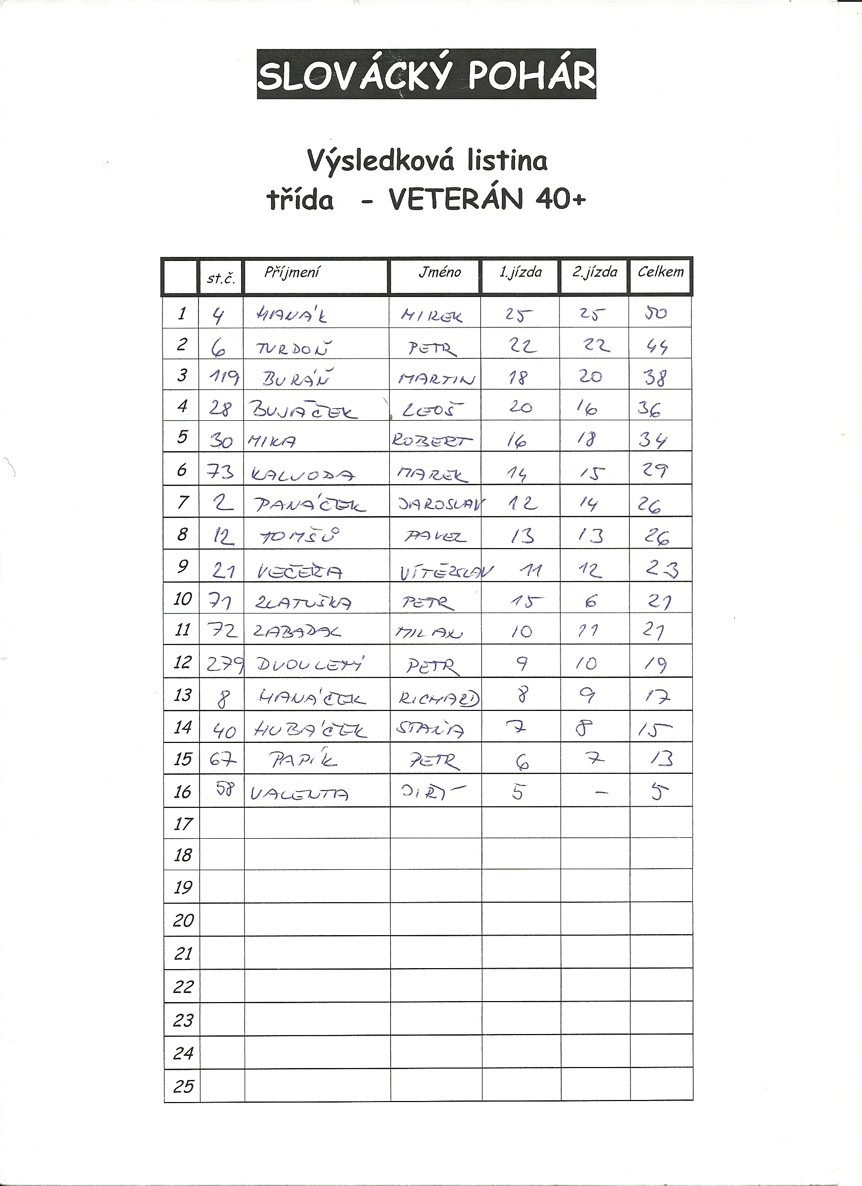 SLOVÁCKÝ POHÁR
Výsledková listina
třída - VETERÁN 40+
st.č. Příjmení Jméno 1.jízda 2.jízda Celkem
1 4 HANÁK MIREK 25 25 50
2 6 TVRDOŇ PETR 22 22 44
3 119 BURÁŇ MARTIN 18 20 38
4 28 BUJÁČEK LEOŠ 20 16 36
5 30 MIKA ROBERT 16 18 34
6 73 KALVODA MAREK 14 15 29
7 2 PANÁČEK JAROSLAV 12 14 26
8 12 TOMŠŮ PAVEL 13 13 26
9 21 VEČEŘA VÍTĚZSLAV 11 12 23
10 71 ZLATUŠKA PETR 15 6 21
11 72 ZABADAL MILAN 10 11 21
12 279 DVOULETÝ PETR 9 10 19
13 8 HANÁČEK RICHARD 8 9 17
14 40 HUBÁČEK STAŇA 7 8 15
15 67 PAPÍK PETR 6 7 13
16 58 VALENTA JIŘÍ 5 – 5
17
18
19
20
21
22
23
24
25